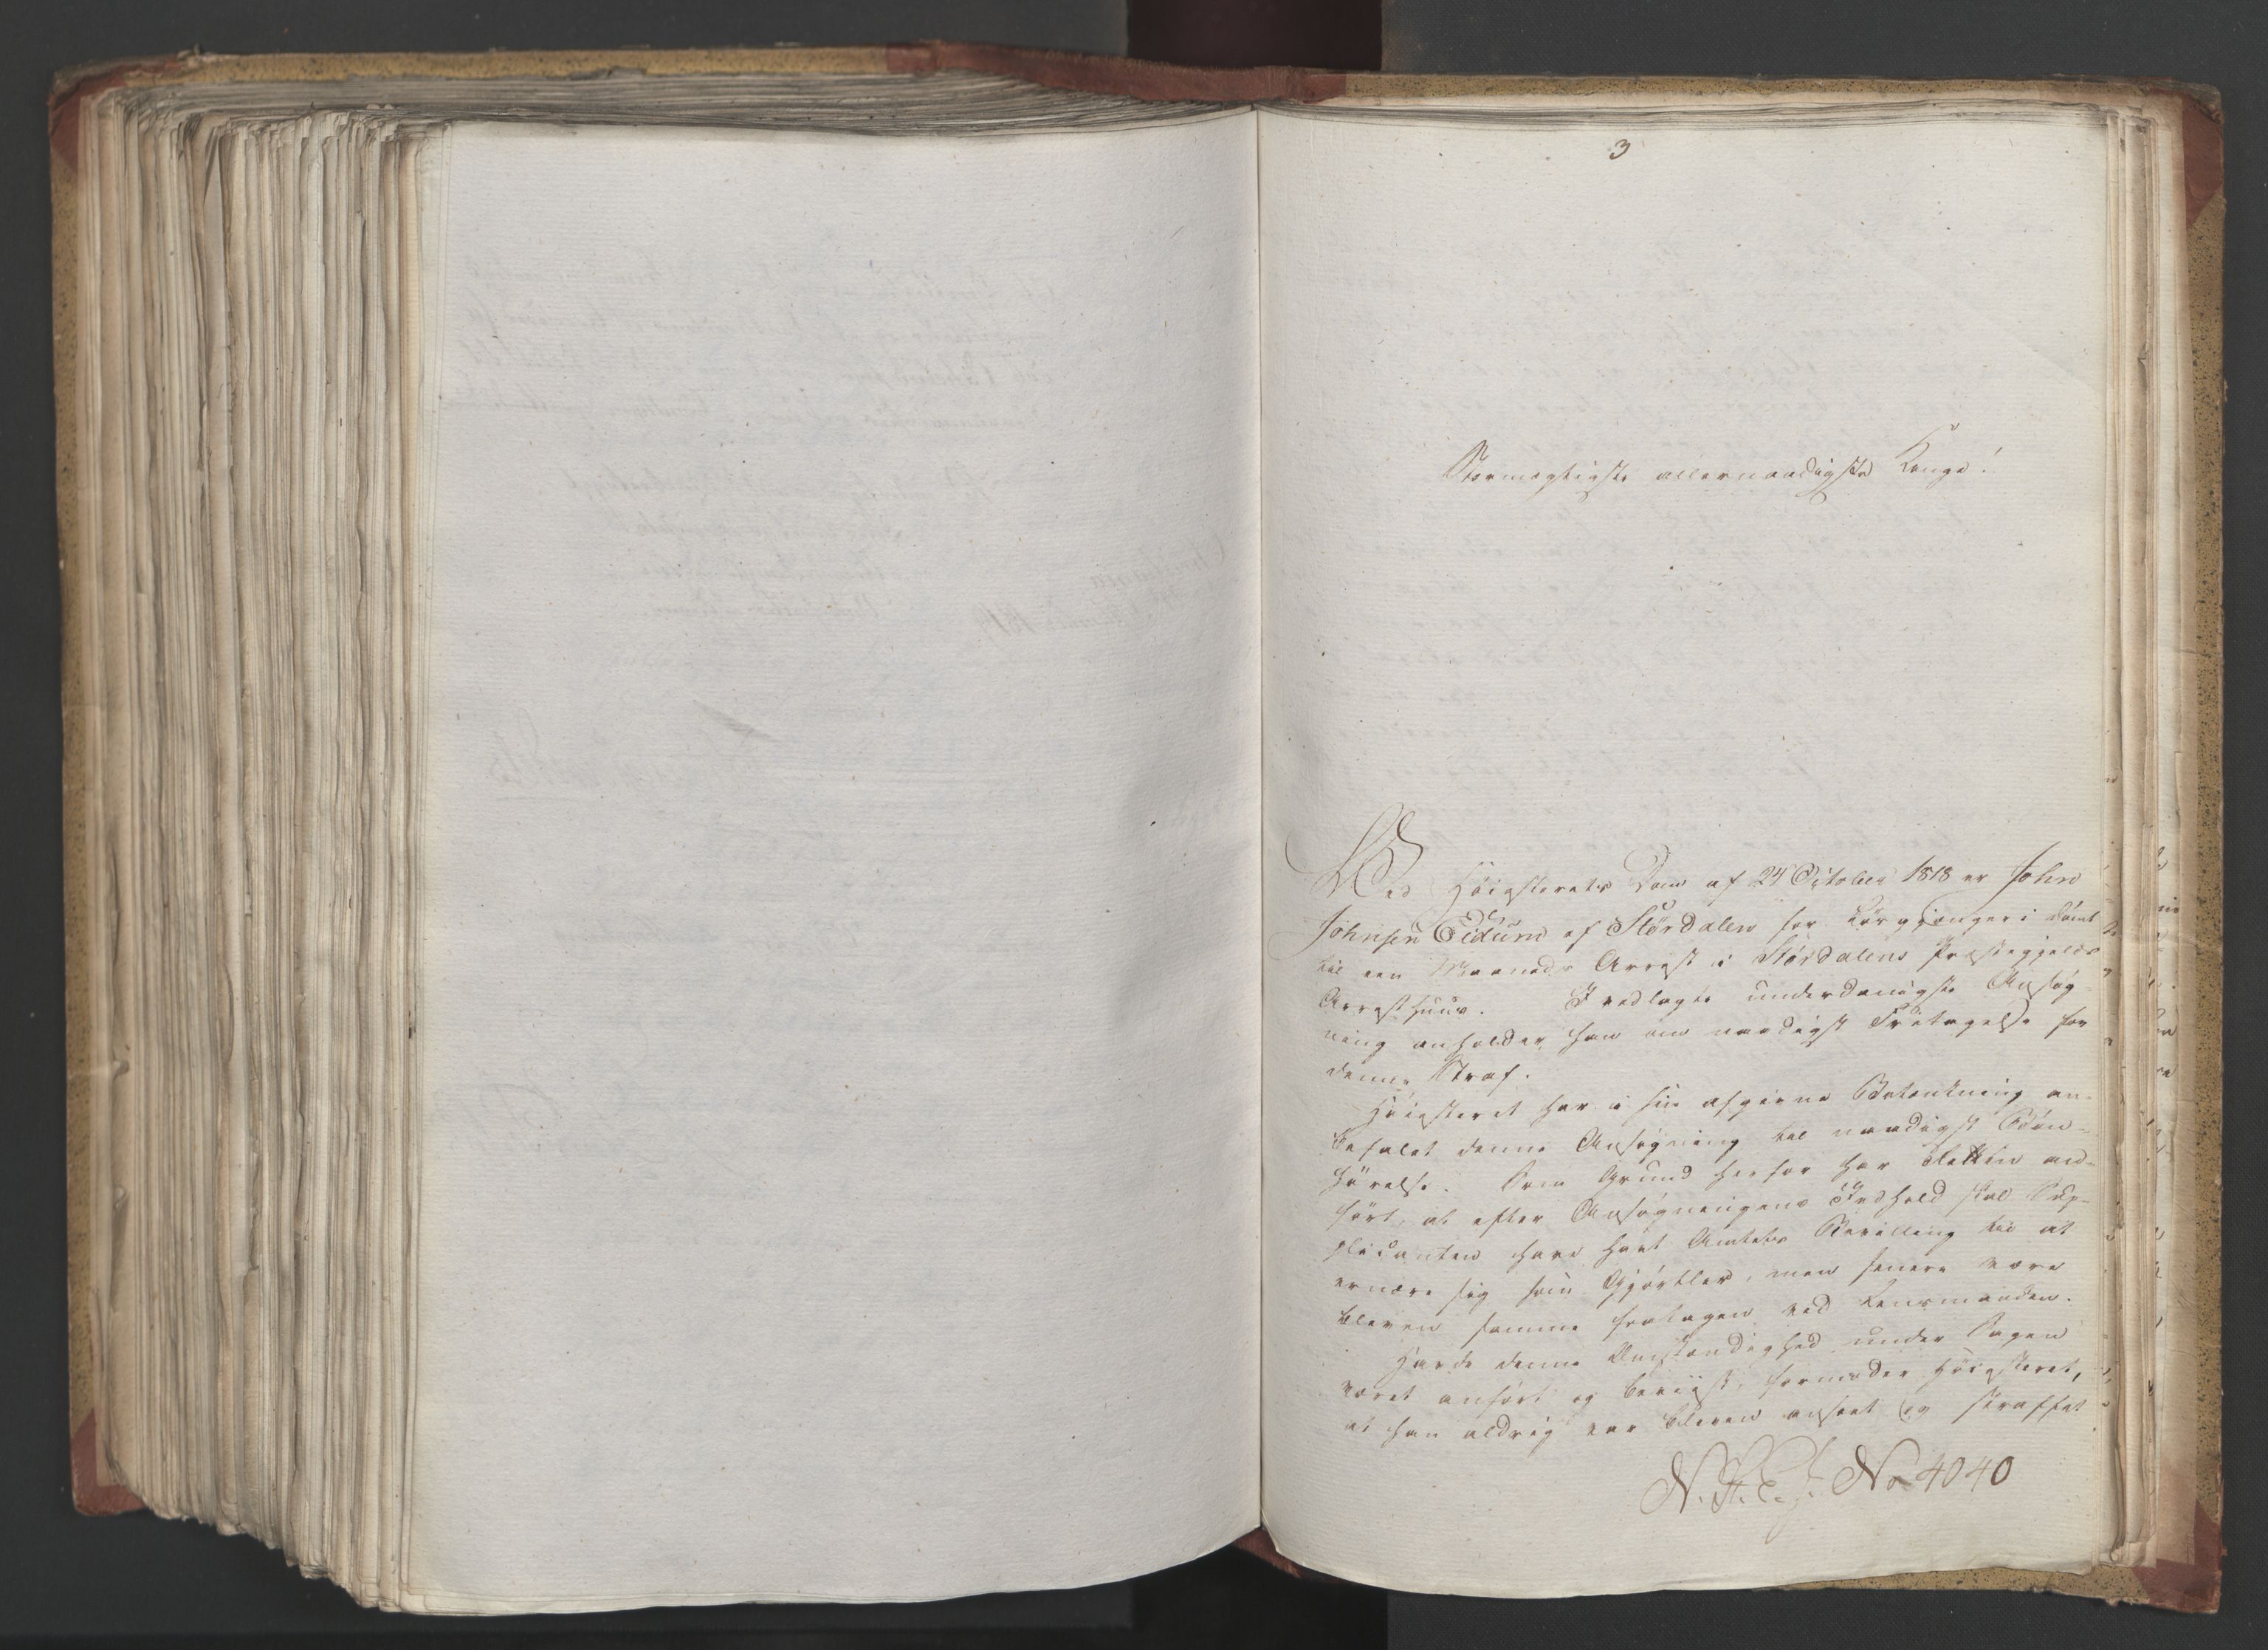 3
Stormægtigste allernaadigste Konge!
Ved Höiesterets Dom af 24 October 1818 er John
Johnsen Eidum af Stördalen for Lösgjængeri dömt
til een Maaneds Arrest i Stördalens Præstegjelds
Arresthuus. I vedlagte underdanigste Ansög-
ning anholder han om naadigst Fritagelse for
denne Straf.
Höiesteret har i sin afgivne Betænkning an-
befalet denne Ansögning til naadigst Bön-
hörelse. Som Grund herfor har Retten an-
fört, at efter Ansögningens Indhold skal Sup-
plicanten have havt Amtets Bevilling til at
ernære sig som Gjörtler, men senere være
bleven samme fratagen ved Lensmanden.
Havde denne Omstændighed under Sagen
været anfört og beviist, formoder Höiesteret,
at han aldrig var bleven anseet og straffet
N. St. E. J. No 4040